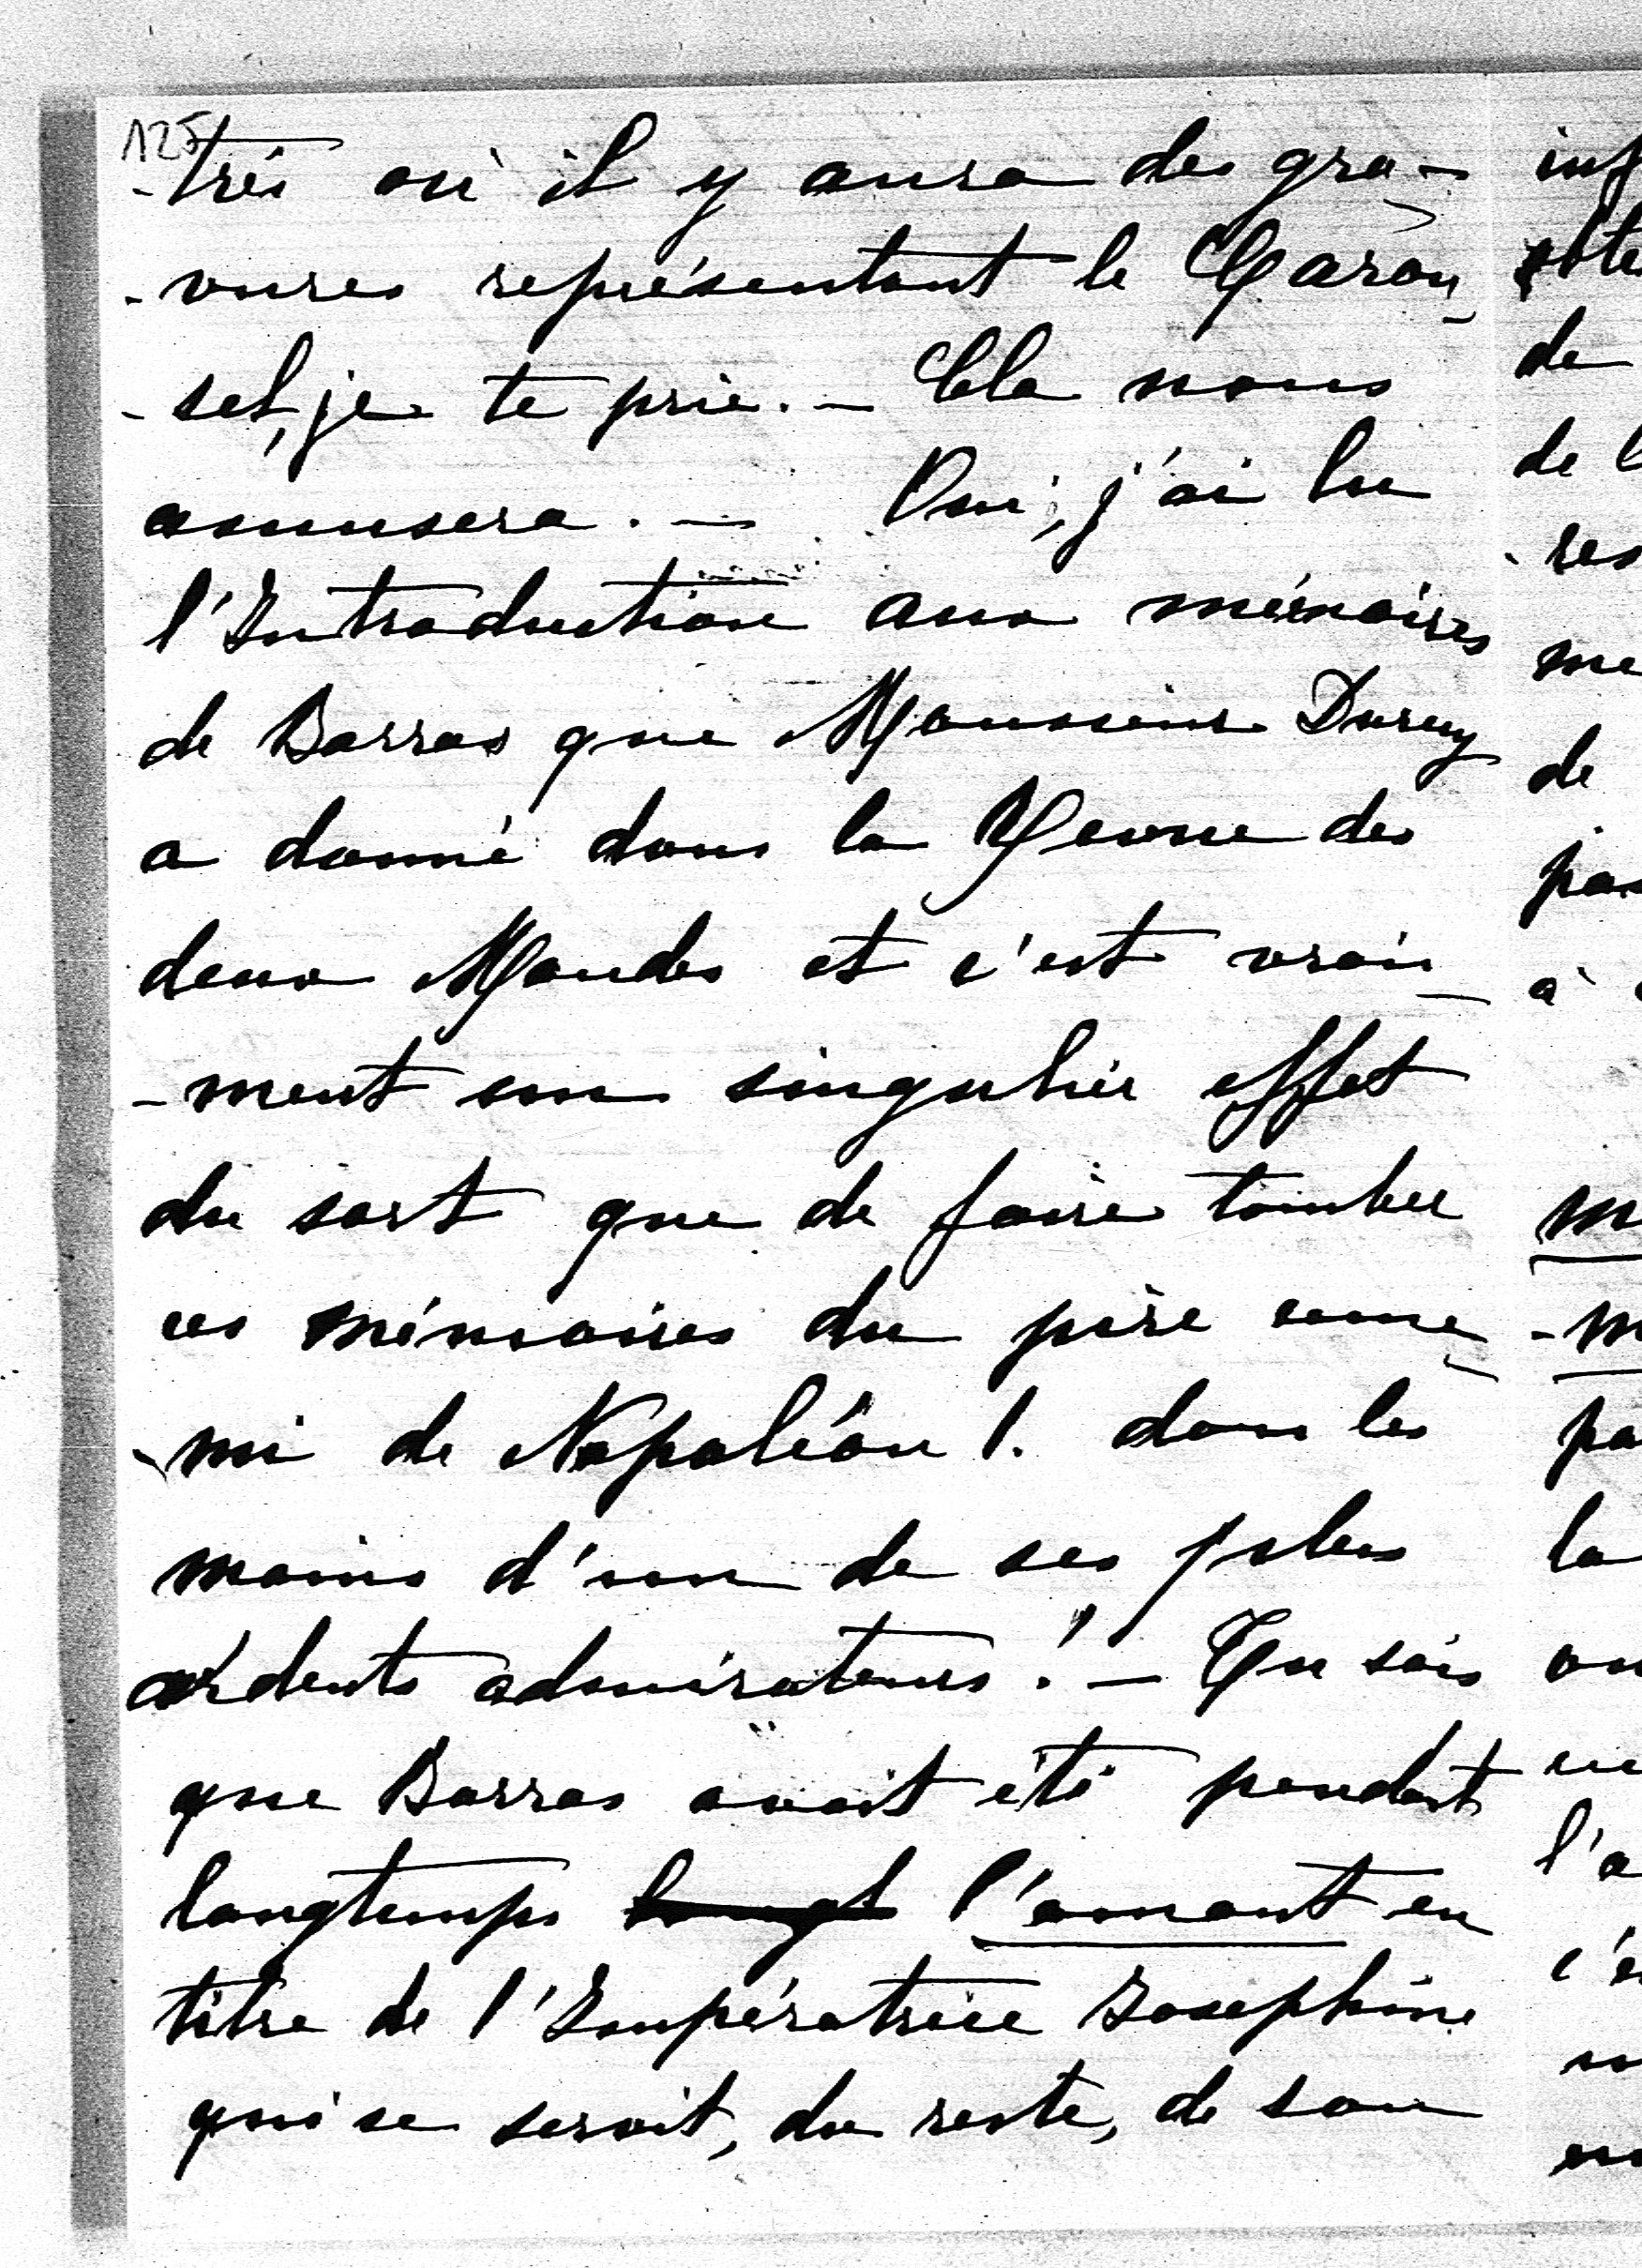 125
-trés où il y aura des gra-
-vures représentant le Carou-
-sel, je te prie. - Cela nous
amusera. - Oui, j'ai lu
l'Introduction aux mémoires
de Barras que Monsieur Duruy
a donné dans la Revue des
deux Mondes et c'est vrai-
-ment un singulier effet
du sort que de faire tomber
ces mémoires du pire enne-
-mi de Napoléon I. dans les
mains d'un de ses plus
ardents admirateurs! - Tu sais
que Barras avait été pendant
longtemps longt l'amant en
titre de l'Impératrice Josephine
qui se serait, du reste, de son